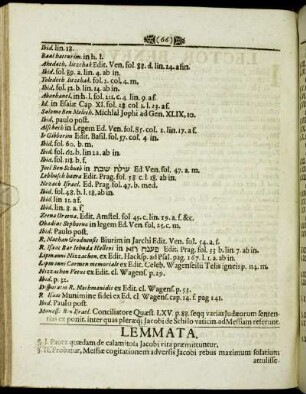 (66)
Ibid. lin. 18.
Baal hatturim. in h. l.
Akedach, Itzchak Edit. Ven. fol. 88. d. lin. 24. a fin.
Ibid. fol. 89. a. lin. 4. ab in.
Toledoth Itzchak. fol. 2. col. 4. m.
Ibid. fol. 52. b. lin. 14. ab in.
Abarbanel. in h. l. fol. 211. c. 4. lin. 9. af.
Id. in Esaiæ Cap. XI. fol. 28 col. 2. l. 23. af.
Salomo Ben Melech. Michlal Jophi ad Gen. XLIX, 10.
Ibid. paulo post.
Alschech in Legem Ed. Ven. fol. 85. col. 1. lin. 17. a f.
Ir Gibborim Edit. Basil. fol. 57. col. 4. in.
Ibid. fol. 60. b. m.
Ibid. fol. 62. b. lin 22. ab in.
Ibid. fol. 118. b. f.
Joël Ben Schoeb in עולת שבת Ed Ven. fol. 47. a. m.
Lebhusch haora Ed. Edit. Prag. fol. 58 c. l. 18. ab in.
Nezach Israel. Ed. Prag. fol. 47. b. med.
Ibid. fol. 48. b. l. 18. ab in.
Ibid lin 11. a f.
Ibid. lin. 8. a f.
Zeena Ureena. Edit. Amstel. fol. 45. c. lin. 19. a. f. &c.
Obadias Sephorno in legem Ed. Ven. fol. 25. c. m.
Ibid. Paulo post.
R. Nathan Biurim in Jarchi Edit. Ven. fol. 54. a. f.
R. Isaac Bar Jehuda in פענח רזא Edit. Prag. fol. 33 b. lin. 7. ab in.
Lipmann Nizzachon. ex Edit. Hacksp. ad Psal. pag. 167. l. 1. 2. ab in.
Lipmanni Carmen memoriale ex Edit. Celeb. Wagenseilii Telis igneis p. 114. m.
Nizzachon Vetus ex Edit. cl. Wagens. p. 29.
Ibid. p. 32.
Disputatio R. Nachmanidis ex Edit. cl. Wagens. p. 53.
R. Isaac Munimine fidei ex Ed. cl. Wagens. cap. 14. f. pag 141.
Ibid. Paulo post.
Menasse Ben Israel. Conciliatore Quæst. LXV. p. 88. seqq varias Judæorum sententias
ex ponit. inter quas pleræque Jacobi de Schilo vaticinium ad Messiam referunt.
LEMMATA.
§. I. Pauca quædam de calamitosa Jacobi vita præmittuntur.
§. II. Probatur, Messiæ cogitationem adversis Jacobi rebus maximum solatium
attulisse.